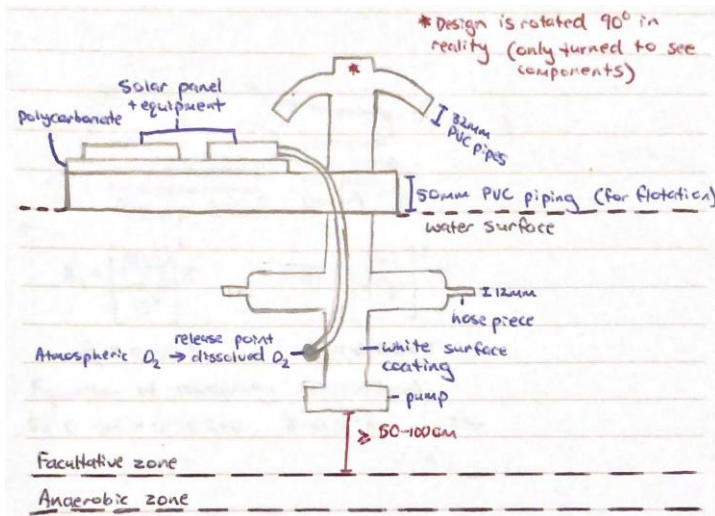 * Design is rotated 90° in
reality (only turned to see
components)
Solar panel
+ equipment
polycarbonate
32mm
PVC pipes
50mm PVC piping (for flotation)
water surface
12mm
hose piece
release point
Atmospheric O₂ → dissolved O₂
white surface
coating
pump
≥ 50-100cm
Facultative zone
Anaerobic zone